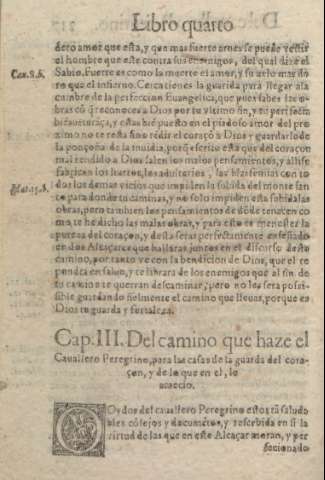 Libro quarto
dero amor que esta, y que mas fuerte arnes se puede vestir
el hombre que este contra sus enemigos, del qual dize el
Can. 8. 6.
Sabio. Fuerte es como la muerte el amor, y su zelo mas du
ro que el infierno. Cerca tienes la guarida para llegar a la
cumbre de la perfeccion Euangelica, que pues sabes
bras q reconoces a Dios por tu vltimo fin, y tu perfecta
bienauenturáça, y estas bié puesto en el piadoso amor del pro
ximo no te resta sino rédir el coraçó a Dios y guardarlo de
la ponçoña de la inuidia, porq escrito esta que del coraçon
mal rendido a Dios salen los malos pensamientos, y alli se
fabrican los hurtos, los adulterios, las blasfemias con to
dos los demas vicios que impiden la subida del monte san
to para donde tu caminas, y no solo impiden esta subida las
obras, pero tambien los pensamientos de dóde tenacen co
mo te he dicho las malas obras, y para esto es menester la
pureza del coraçon, y desta seras perfectamente enseñado
en dos Alcaçares que hallaras juntos en el discurso deste
camino, por tanto ve con la bendicion de Dios, que el te
pondra en saluo, y te librara de los enemigos que al fin de
tu camino te querran descaminar, pero no les sera possi-
ble guardando fielmente el camino que lleuas, porque es
Dios tu guarda y fortaleza.
Cap. III. Del camino que haze el
Cauallero Peregrino, para las casas de la guarda del cora-
çon, y de lo que en el, le
acaecio.
OYdos del cauallero Peregrino estos tá saluda
bles cósejos y documétos, y rescebida en si la
virtud de las que en este Alcaçar moran, y per
ficionado